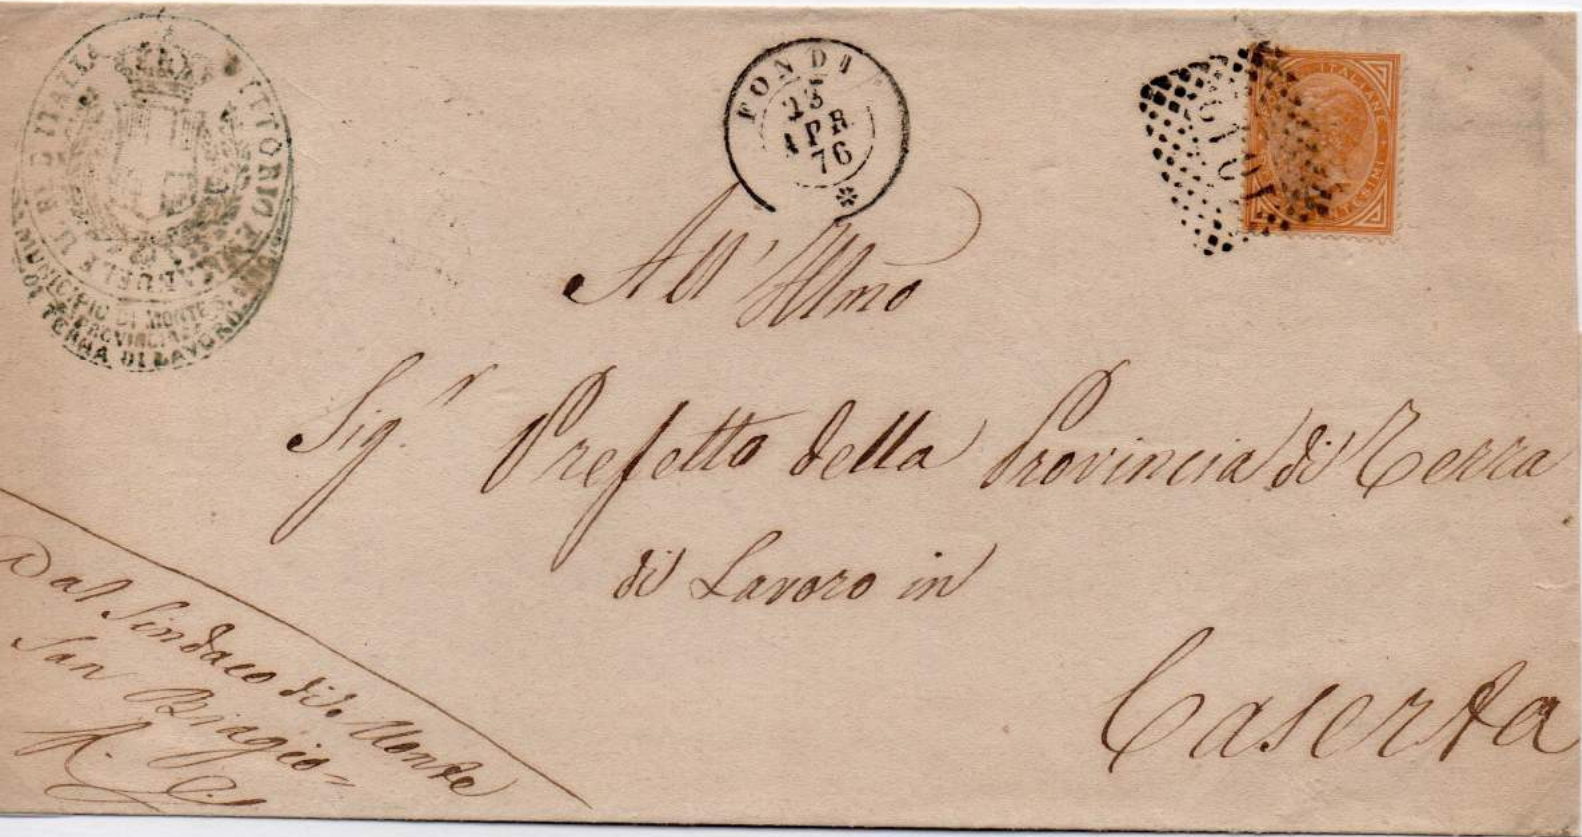 VITTORIO EMANUELE II RE D'ITALIA
MUNICIPIO DI MONTE S.
PROVINCIA
DI TERRA DI LAVORO
FONDI
23
APR
76
ITALIANE
All' Illmo
Sig.r Prefetto della Provincia di Terra
di Lavoro in
Caserta
Dal Sindaco di Monte
San Biagio